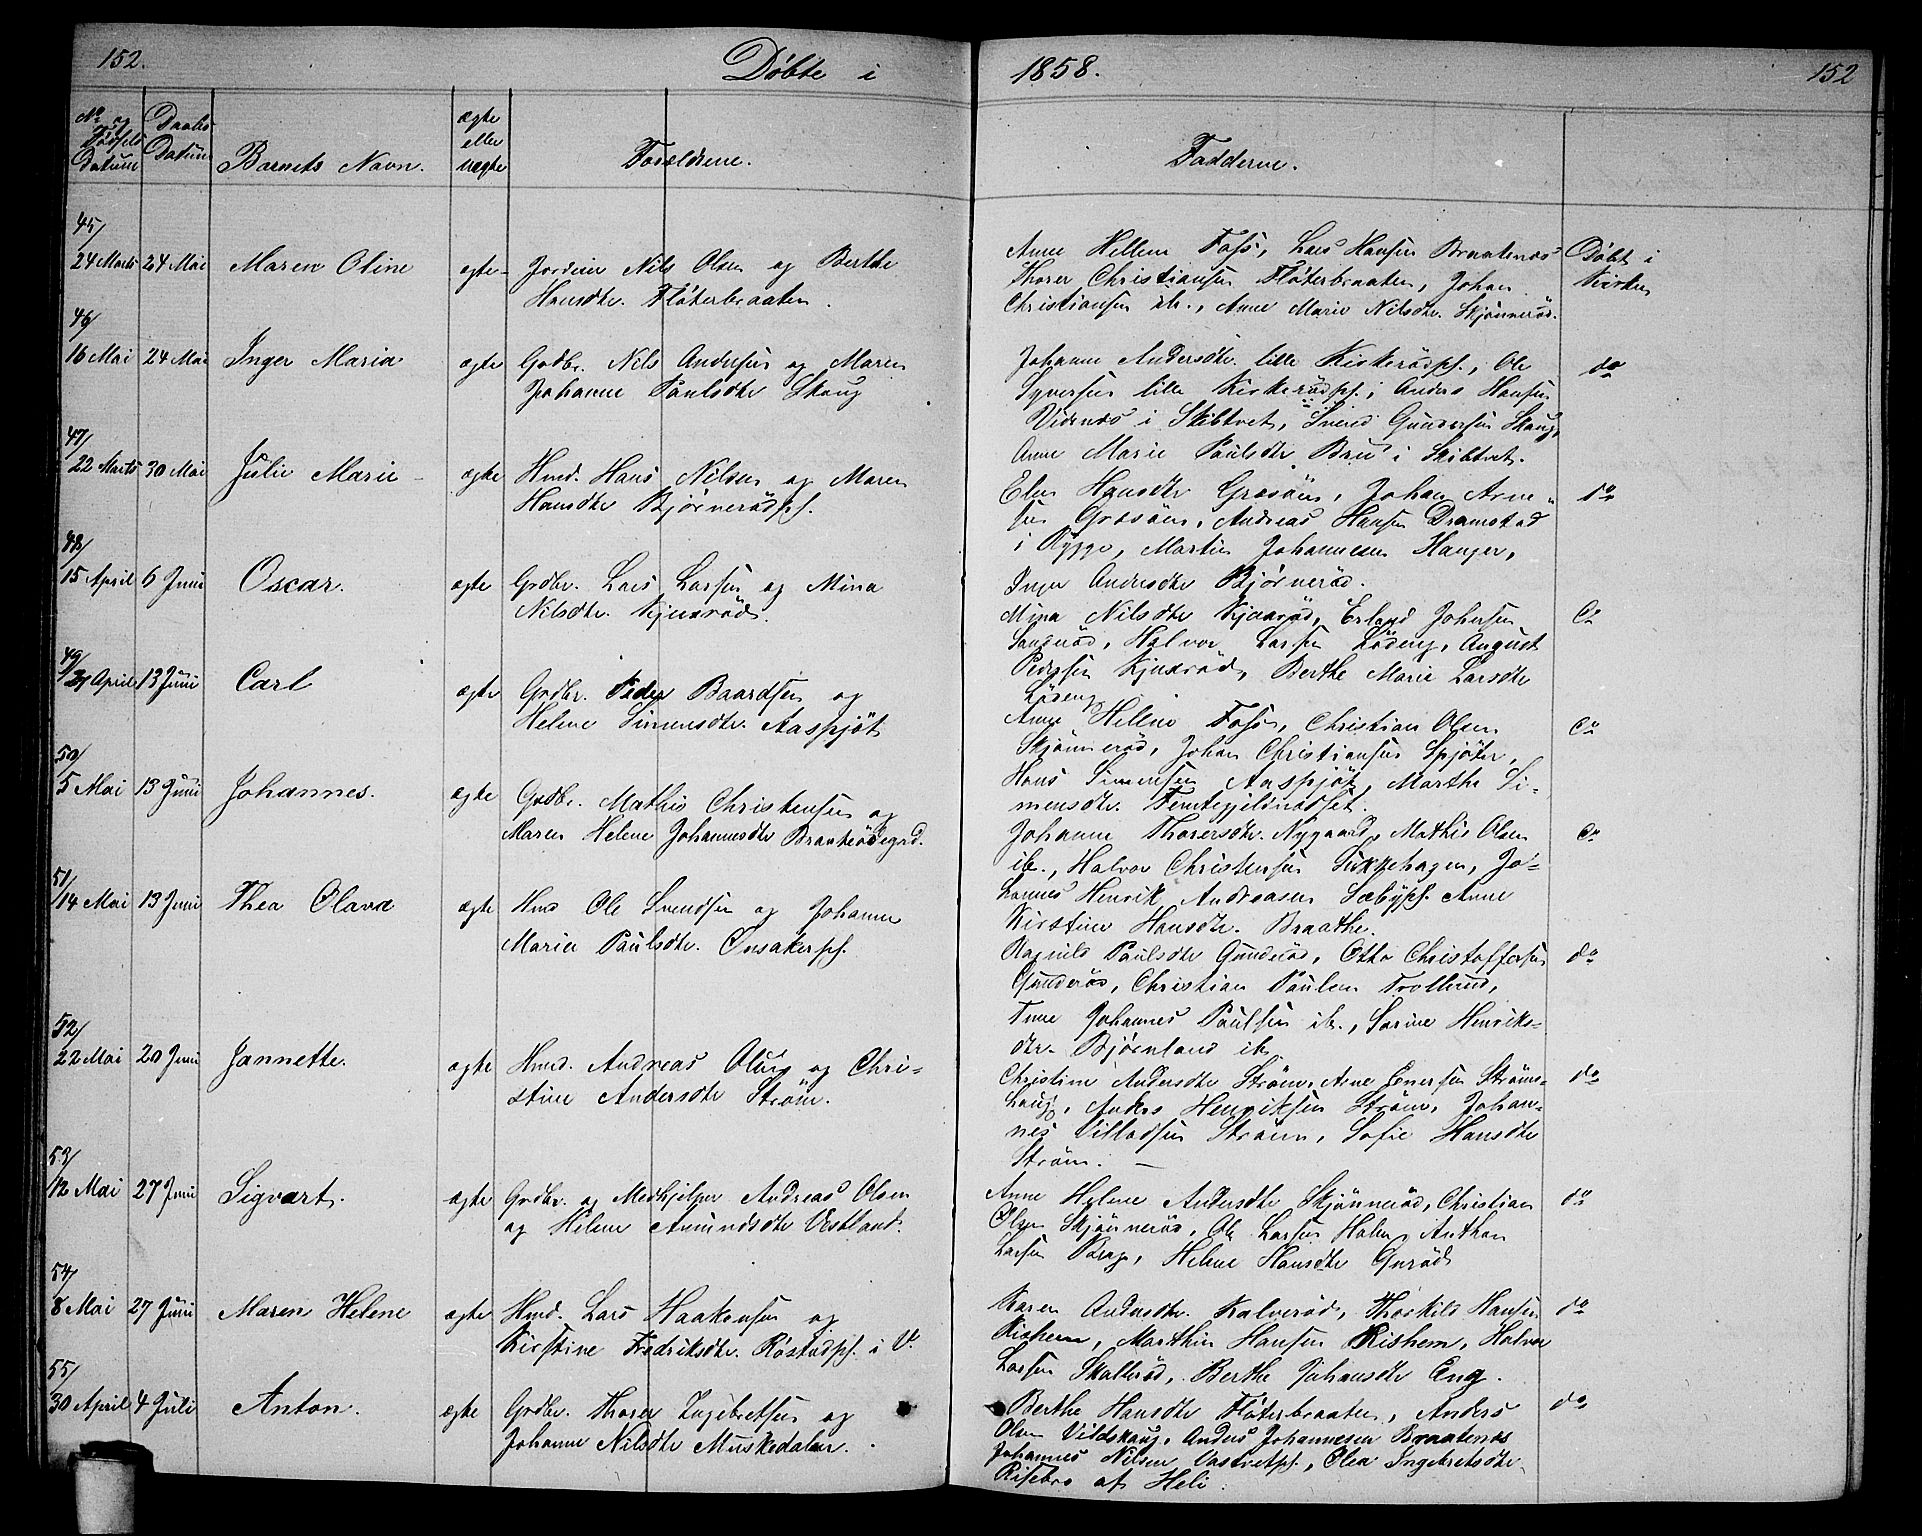 152. Døbte i 1858. 152
No og Fødsels Datum
Daabs Datum
Barnets Navn.
ægte eller uægte
Forældrene.
Fadderne.
45/
24 Marts 24 Mai Maren Oline ægte Nils Olsen og Berthe
Hansdtr. Fløterbraaten.
Anne Hellene Foss, Lars Hansen Braatenes
Thorer Christiansen Fløterbraaten, Johan
Christiansen ib., Anne Marie Nilsdtr. Skjønnerød.
Døbt i
Kirken
46/
16 Mai 24 Mai Inger Maria ægte Grdbr. Nils Andersen og Maren
Johanne Paulsdtr Skaug
Johanne Andersdtr. lille Kirkerødpf., Ole
Syversen lille Kirkerødpf., Anders Hansen
Videnes i Skibtvet, Svend Gundersen Skaug,
Anne Marie Paulsdtr Bru i Skibtvet.
do
47/
22 Marts 30 Mai Julie Marie ægte Hmd. Hans Nilsen og Maren
Hansdtr Bjørnerødpf.
Elen Hansdtr Græsaas, Johan Arne-
sen Græsaas, Andreas Hansen Dramstad
i Rygge, Martin Johannesen Hauger,
Inger Andersdtr Bjørnerød.
do
48/
15 April 6 Juni Oscar. ægte Grdbr. Lars Larsen og Mina
Nilsdtr. Kjuxrød.
Mina Nilsdtr Kjuxrød, Erland Johnsen
Sandrød, Halvor Larsen Lødeng, August
Pedersen Kjuxrød, Berthe Marie Larsdtr
Lødeng
49/
21 April 13 Juni Carl ægte Grdbr. Peder Baardsen og
Helene Simensdtr. Aaspjøt
Anne Helene Foss, Christian Olsen
Skjønnerød, Johan Christiansen Spjøter,
Hans Simensen Aaspjøt, Marthe Si-
mensdtr. Femtegjeldrødset.
50/
5 Mai 13 Juni Johannes. ægte Grdbr. Mathis Christensen og
Maren Helene Johannesdtr Braaterødegrd.
Johanne Thorersdtr. Nygaard, Mathis Olsen
ib., Halvor Christensen Sukkehagen, Jo-
hannes Henrik Andreasen Sæbypf. Anne
Kirstine Hansdtr. Braathe.
51/
14 Mai 13 Juni Thea Olava ægte Hmd Ole Svendsen og Johanne
Marie Paulsdtr. Onsakerpf.
Ragnild Paulsdtr Gunderød, Otto Christoffersen
Gunderød, Christian Paulsen Trollerud,
Johannes Paulsen ib., Sorine Henriks-
dtr. Bjørnland ib.
do
52/
22 Mai 20 Juni Jannette. ægte Hmd. Andreas Olsen og Chri-
stine Andersdtr Strøm.
Christine Andersdtr Strøm, Arne Enersen Strøms-
haug, Anders Henriksen Strøm, Johan-
nes Villadsen Strøm, Sofie Hansdtr
Strøm. —
do
53/
12 Mai 27 Juni Sigvart. ægte Grdbr. og Medhjelper Andreas Olsen
og Helene Amundsdtr Vestland.
Anne Helene Andersdtr Skjønnerød, Christian
Olsen Skjønnerød, Ole Larsen Halen, Anthon
Larsen Berg, Helene Hansdtr Gurød
do
54/
8 Mai 27 Juni Maren Helene ægte Hmd. Lars Haakensen og
Kirstine Fredriksdtr. Røstadpf. i V.
Karen Andersdtr. Kalverød, Thorkild Hansen
Rishem, Marthin Hansen Rishem, Halvor
Larsen Skallerød, Berthe Johansdtr Eng.
do
55/
30 April 4 Juli Anton. ægte Grdbr. Thorer Ingebretsen og
Johanne Nilsdtr Muskedalen.
Berthe Hansdtr Fløterbraaten, Anders
Olsen Vildskaug, Anders Johannesen Braatenes
Johannes Nilsen Vastvetpf., Olea Ingebretsdtr.
Risebro af Heli.
do